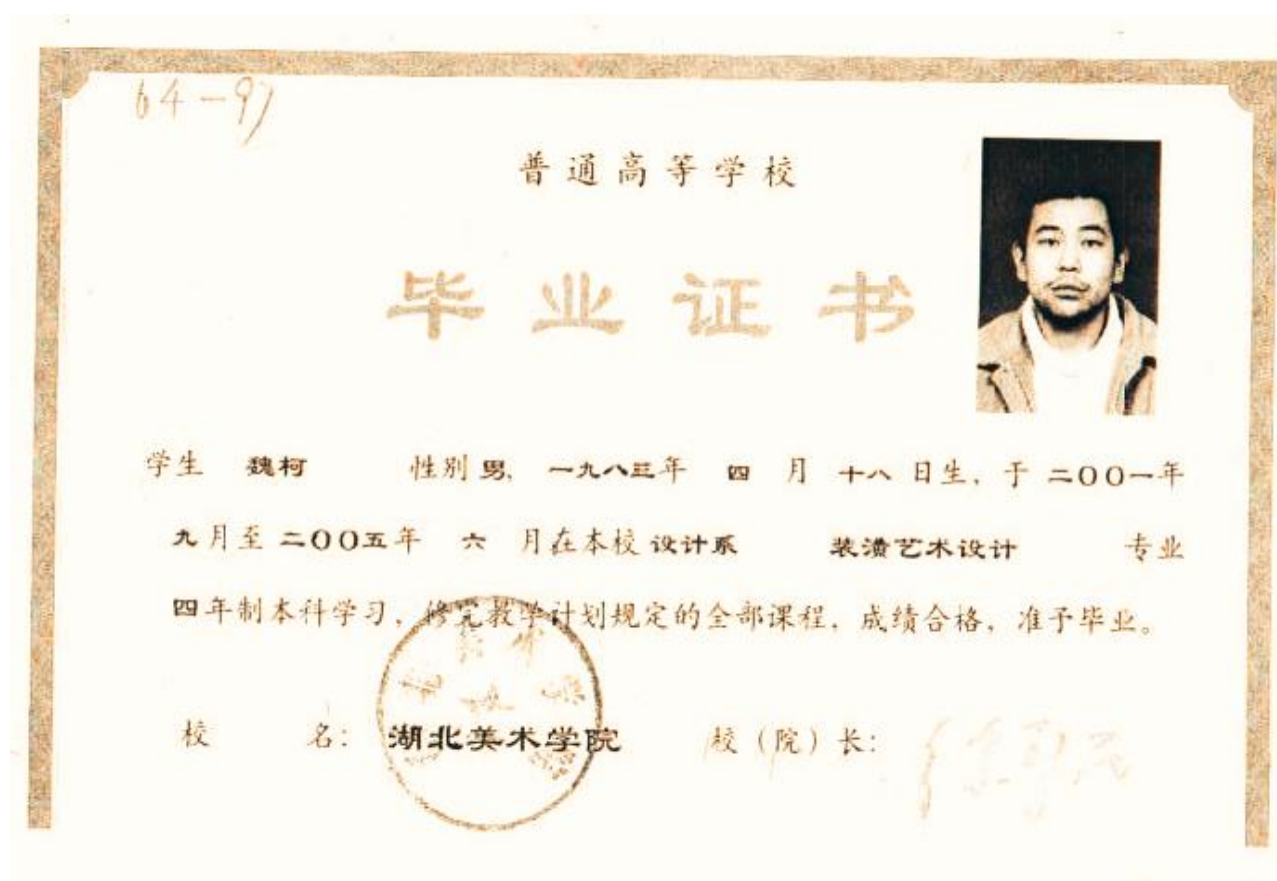 64-97
普通高等学校
毕业证书
学生 魏柯 性别 男, 一九八三年 四 月 十八 日生, 于 二〇〇一年
九月至 二〇〇五年 六 月在本校 设计系 装潢艺术设计 专业
四年制本科学习, 修完教学计划规定的全部课程, 成绩合格, 准予毕业。
校 名: 湖北美术学院 校（院）长: